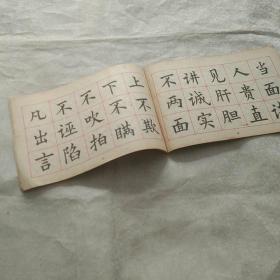 当面
人贵直
见肝胆
讲诚实
不两面
上不欺
下不瞒
不吹拍
不诬陷
凡出言